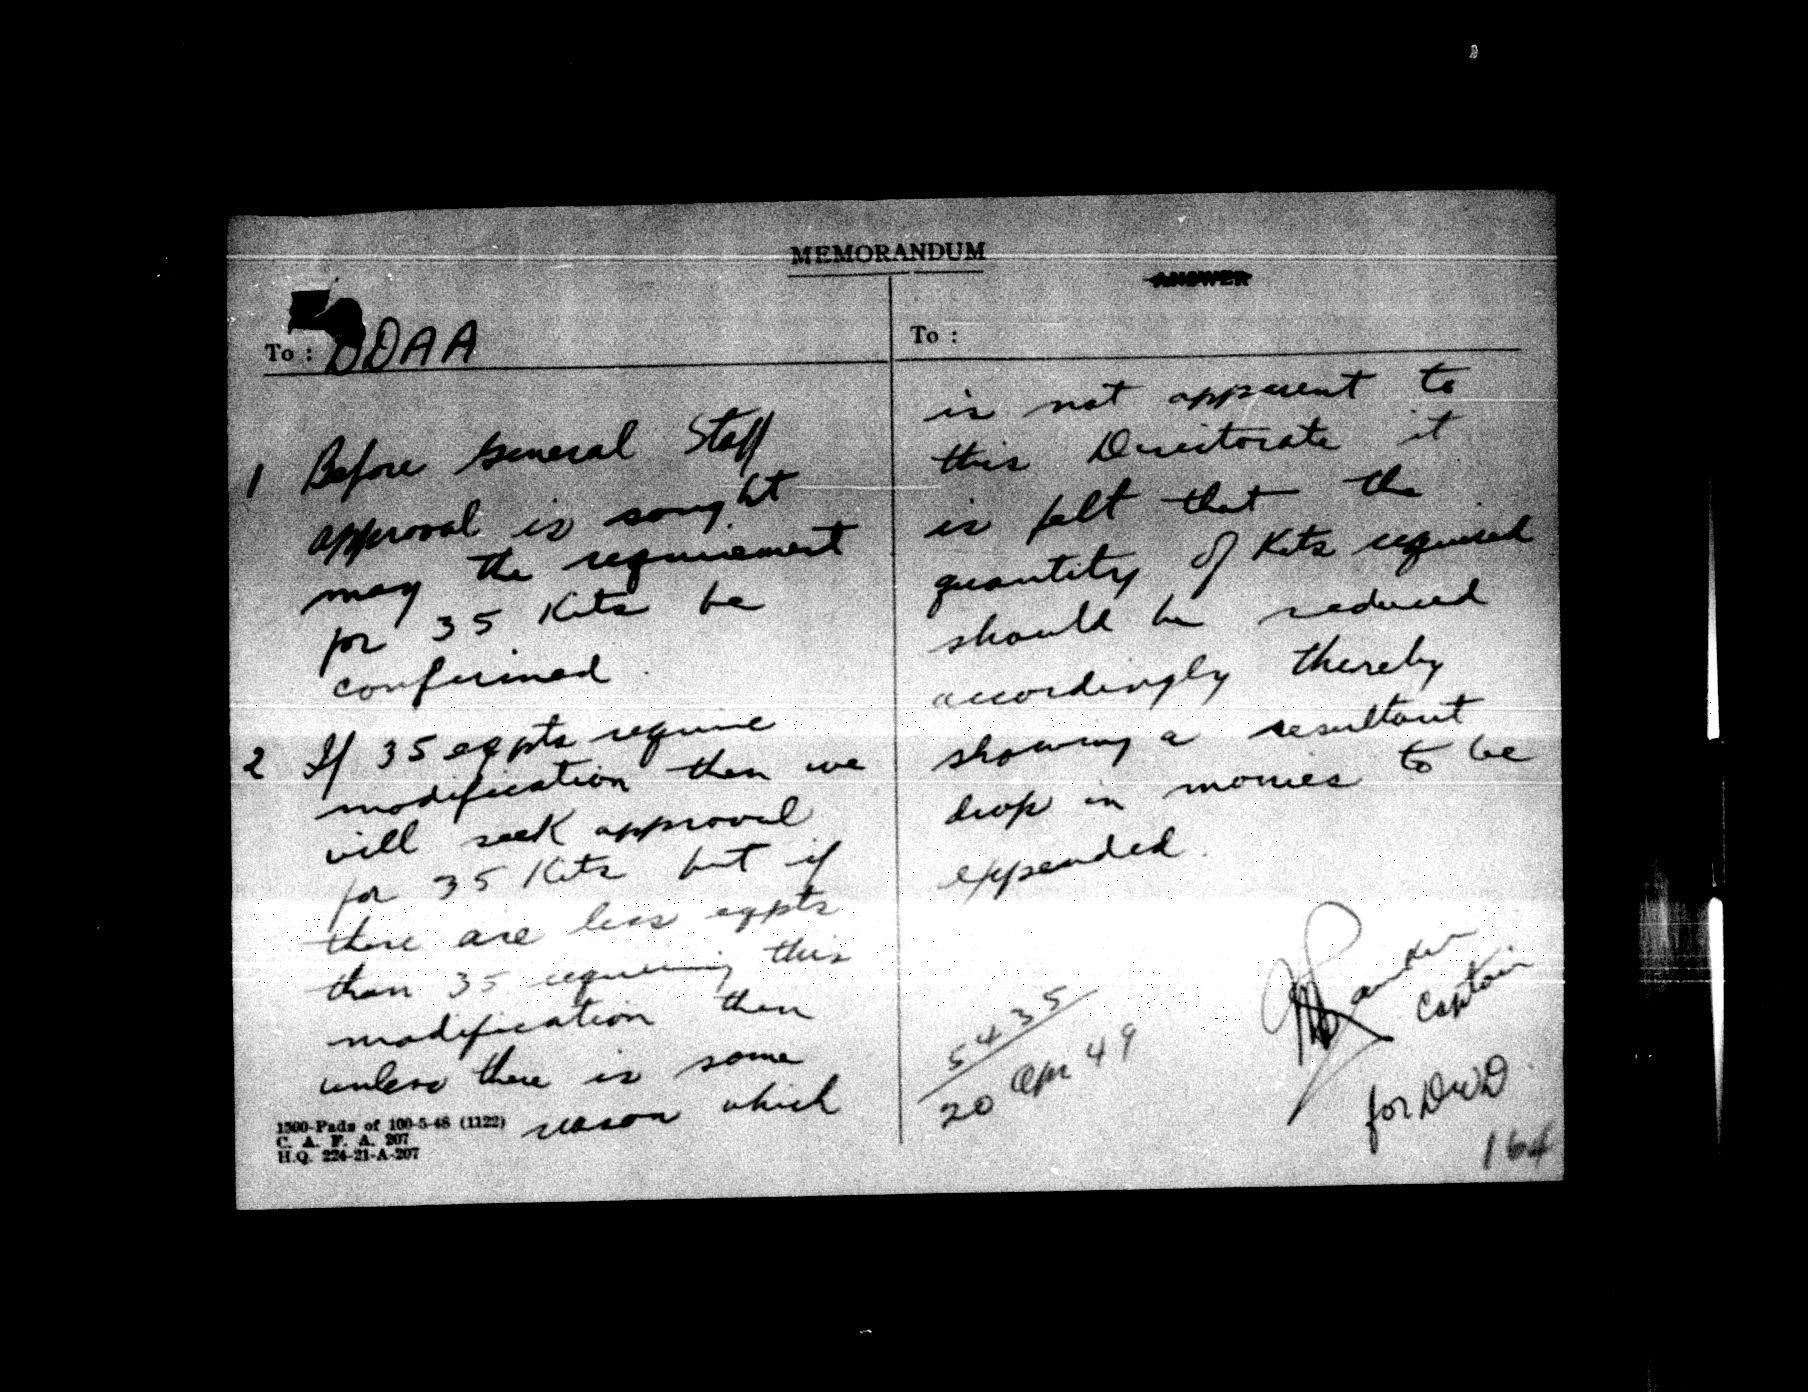 MEMORANDUM
ANSWER
To : DDAA
1 Before General Staff
approval is sought
may the requirement
for 35 Kits be
confirmed.
2 If 35 eqpts require
modification then we
will seek approval
for 35 Kits but if
there are less eqpts
than 35 requiring this
modification then
unless there is some
reason which
1500-Pads of 100-5-48 (1122)
C. A. F. A. 207
H.Q. 224-21-A-207
To :
is not apparent to
this Directorate it
is felt that the
quantity of Kits required
should be reduced
accordingly thereby
showing a resultant
drop in monies to be
expended.
5435
20 Apr 49
Captain
for DWD
164